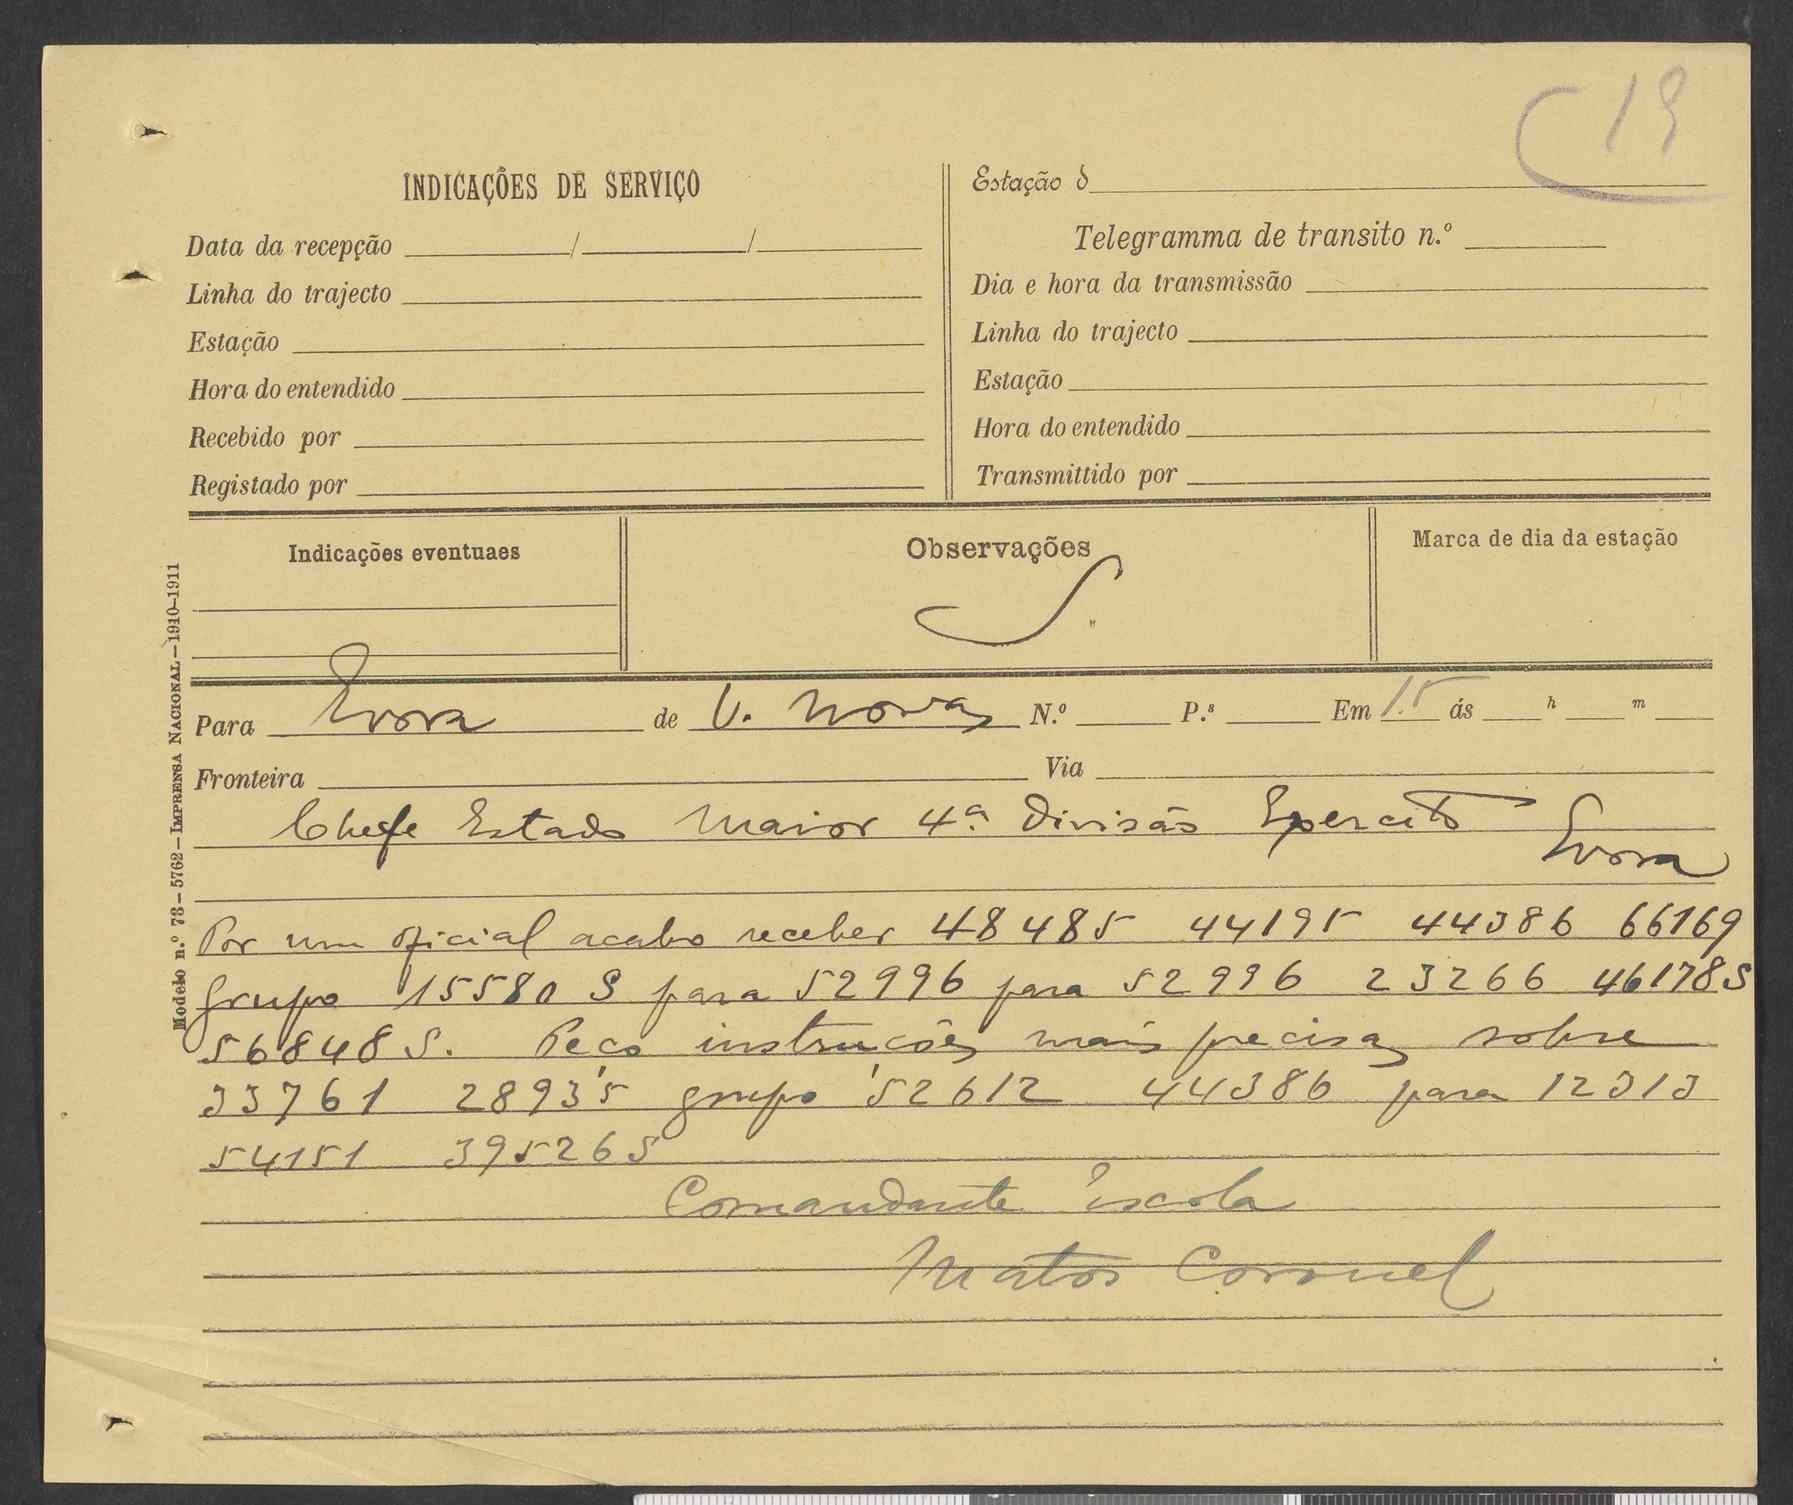 19
INDICAÇÕES DE SERVIÇO
Data da recepção / /
Linha do trajecto
Estação
Hora do entendido
Recebido por
Registado por
Estação d
Telegramma de transito n.º
Dia e hora da transmissão
Linha do trajecto
Estação
Hora do entendido
Transmittido por
Indicações eventuaes
Observações
S
Marca de dia da estação
Modelo n.º 73—5762—IMPRENSA NACIONAL—1910-1911
Para Evora de V. Novas N.º P.s Em 15 ás h m
Fronteira Via
Chefe Estado Maior 4ª Divisão Exercito
Evora
Por um oficial acabo receber 48485 44195 44386 66169
grupo 15580 S para 52996 para 52996 23266 46178S
56848S. Peço instrucões mais precisas sobre
33761 28935 grupo 52612 44386 para 12313
54151 39526S
Comandante escola
Matos Coronel